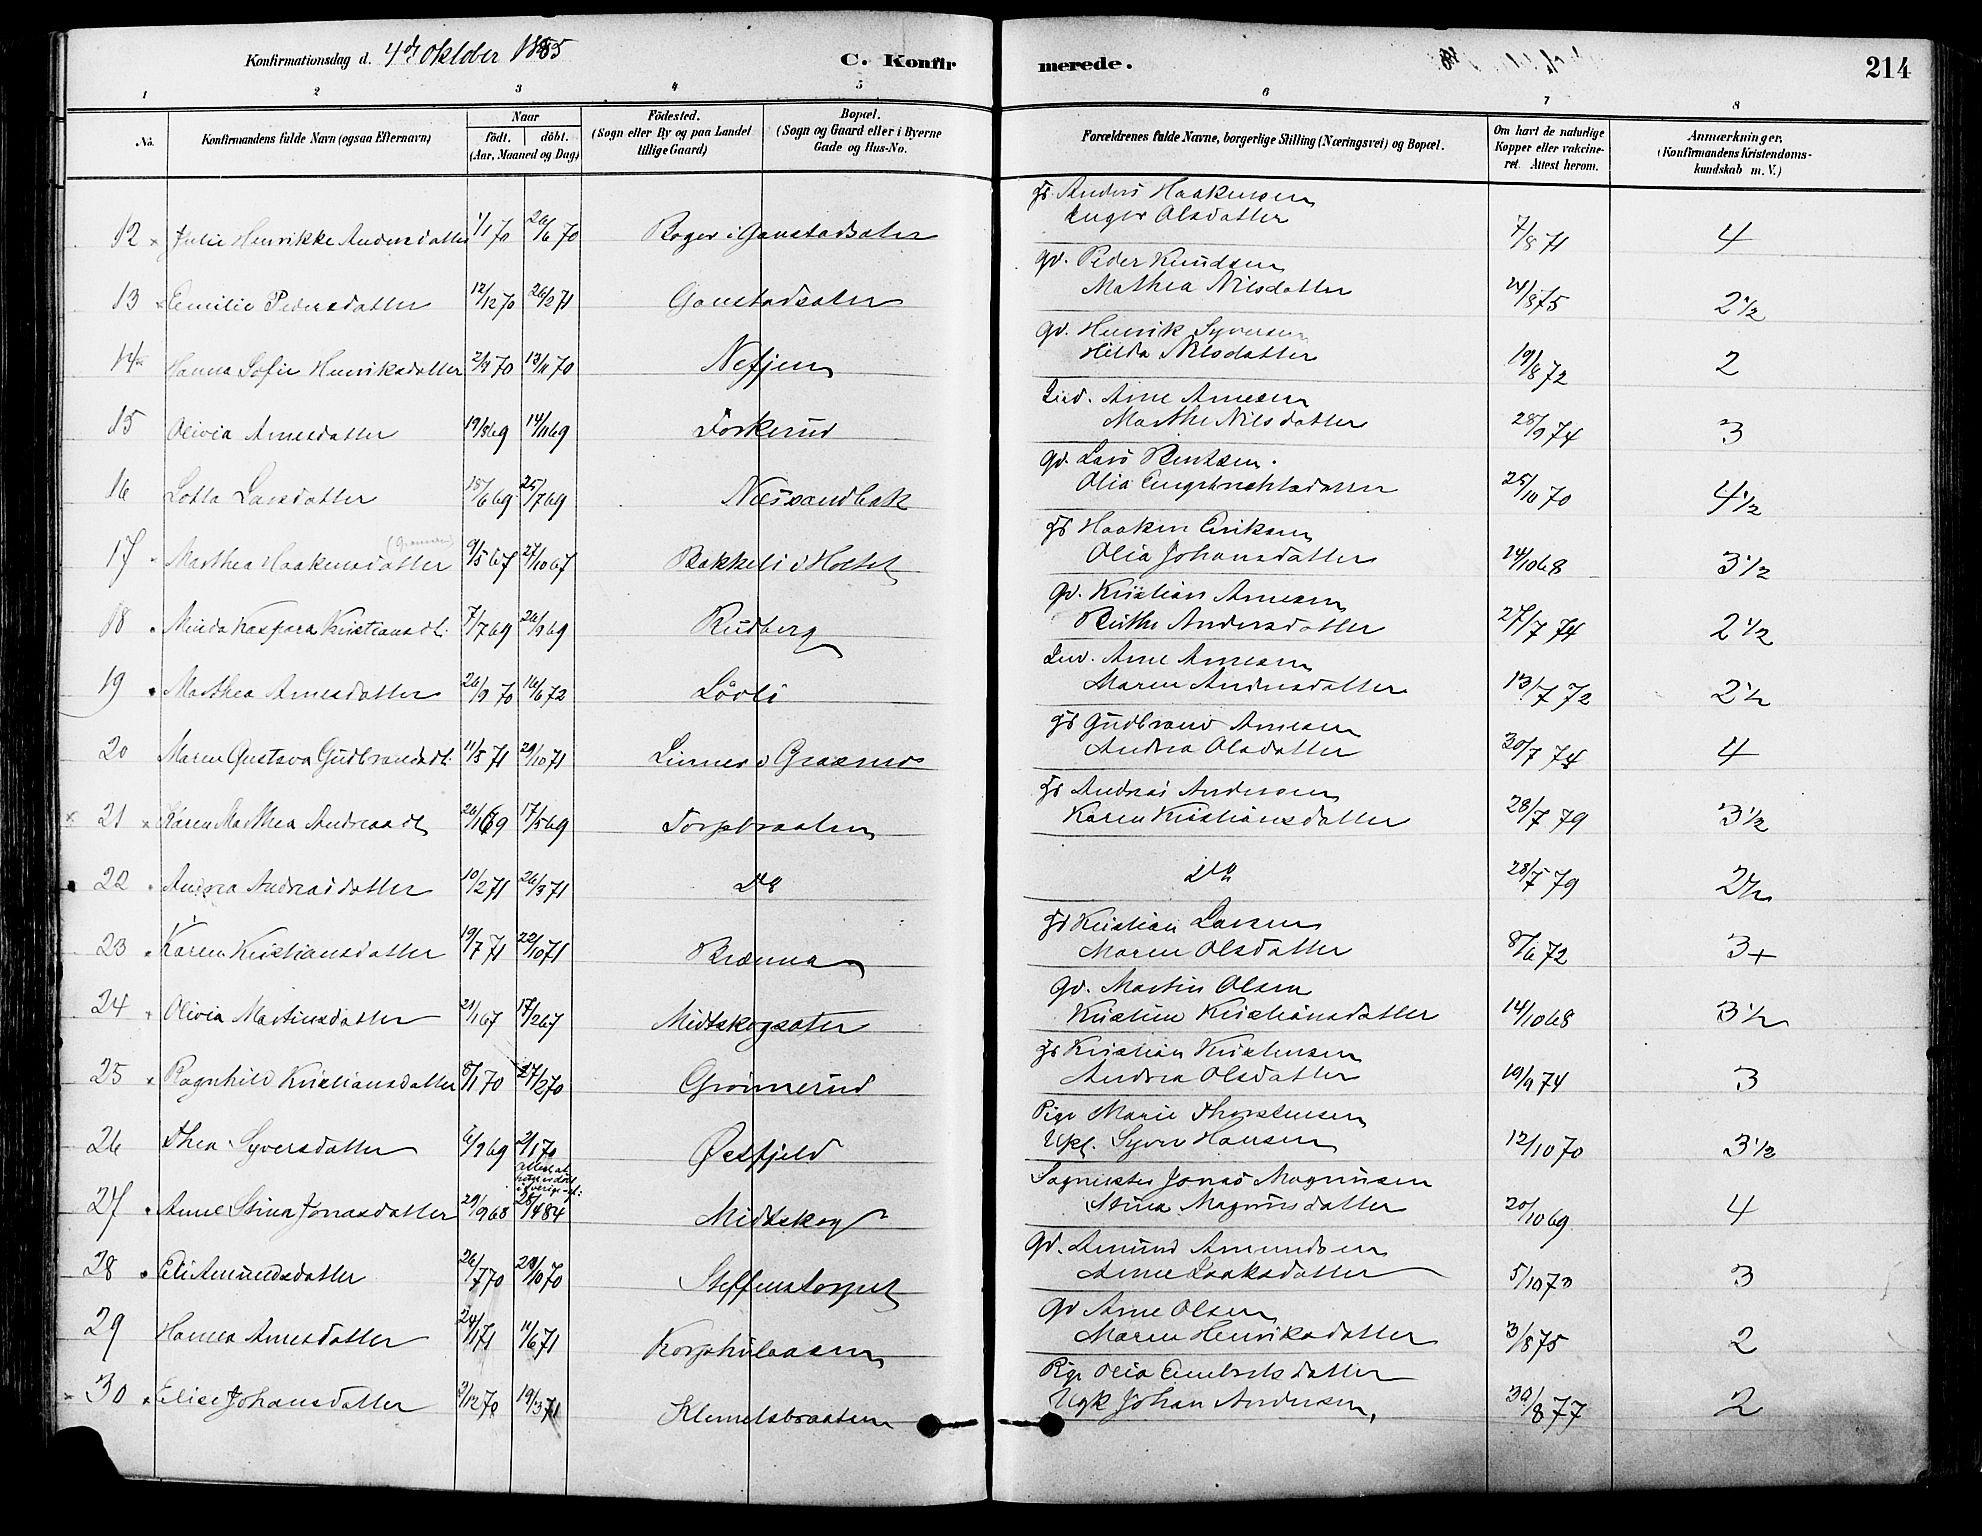 Konfirmationsdag d. 4de Oktober 1885 C. Konfirmerede. 214
1 2 3 4 5 6 7 8
No. Konfirmandens fulde Navn (ogsaa Efternavn) Naar födt. döbt. (Aar, Maaned og Dag) Födested. (Sogn eller By og paa Landet tillige Gaard) Bopæl. (Sogn og Gaard eller i Byerne Gade og Hus-No. Forældrenes fulde Navne, borgerlige Stilling (Næringsvei) og Bopæl. Om havt de naturlige Kopper eller vakcineret. Attest herom. Anmærkninger. (Konfirmandens Kristendomskundskab m. V.)
Anders Haakensen
12 Julie Henrikke Andersdatter 1/1 70 26/6 70 Roger i Gaustadsater Inger Olsdatter 7/8 71 4
gv. Peder Knudsen
13 Emilie Pedersdatter 12/12 70 26/2 71 Gaustadsater Mathea Nilsdatter 24/8 75 2 1/2
gv. Henrik Syversen
14 Hanna Sofie Henriksdatter 13/11 70 Nefjen Hilda Nilsdatter 19/8 72 2
Arne Arnesen
15 Olivia Arnesdatter 14/11 69 Torkerud Marthe Nilsdatter 28/9 74 3
gv. Lars Berntsen.
16 Lotta Larsdatter 18/6 69 25/7 69 Olia 25/10 70 4 1/2
Haaken Eriksen
17 Marthea Haakensdatter 9/5 67 27/10 67 Bakkeli i Holtet Olia Johansdatter 14/10 68 3 1/2
gv. Kristian Arnesen
18 Minda Kaspara Kristiansdt. 7/7 69 26/9 69 Rudberg Berthe Andersdatter 27/7 74 2 1/2
Arne Arnesen
19 Marthea Arnesdatter 26/9 70 16/6 72 Lövli Maren Andersdatter 13/7 72 2 1/2
Gudbrand Arnesen
20 Maren Gustava Gudbrandsdt. 11/5 71 29/10 71 Linnes i Andrea Olsdatter 30/7 74 4
Andreas Andersen
21 Karen Marthea Andreasdt 26/1 69 17/5 69 Torpbraaten Karen Kristiansdatter 28/7 79 3 1/2
22 Andrea Andreasdatter 10/2 71 26/3 71 Do do 28/7 79 2 1/2
Kristian Larsen
23 Karen Kristiansdatter 19/7 71 22/10 71 Brænna Maren Olsdatter 8/6 72 3+
gv. Martin Olsen
24 Olivia Martinsdatter 21/1 67 17/2 67 Midtskogsater Kristine Kristiansdatter 14/10 68 3 1/2
Kristian Kristensen
25 Ragnhild Kristiansdatter 8/1 70 27/2 70 Grönnerud Andrea Olsdatter 19/9 74 3
Pige Marie Thorstensen
26 Thea Syversdatter 6/9 69 2/1 70 Østfjeld Ugkl. Syver Hansen 12/10 70 3 1/2
Sagmester Jonas Magnusen
27 Anne Stina Jonasdatter 29/9 68 28/4 84 Midtskog Stina Magnusdatter 20/10 69 4
gv. Amund Amundsen
28 Eli Amundsdatter 26/7 70 Steffenstorpet Anne Isaksdatter 5/10 73 3
gv Arne Olsen
29 Hanna Arnesdatter 24/1 71 11/6 71 Korphulaasen Maren Henriksdatter 3/8 75 2
Pige Olia Embretsdatter
30 Elise Johansdatter 3/12 70 19/3 71 Klemetsbraaten Ugk Johan Andersen, 30/8 77 2